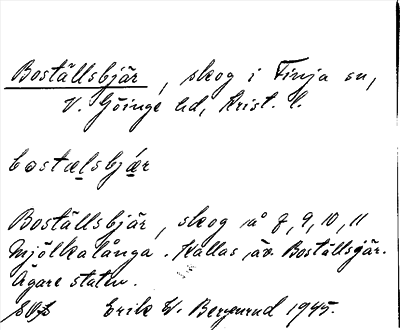 Boställsbjär, skog i Finja sn,
V. Göinge hd, Krist. l.
bostælsbjær
Boställsbjär, skog å 7, 9, 10, 11
Mjölkalånga. Kallas äv. Boställsjär.
Ägare staten.
Erik W. Bergenrud 1945.